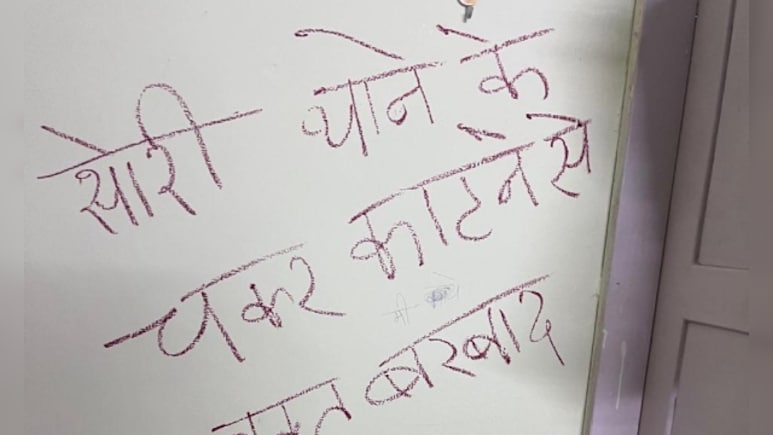 सोरी थाने के
चकर काटने से
बरबाद